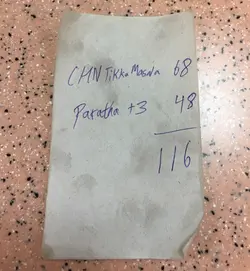 CHN Tikka Masala 68
Paratha +3 48
116